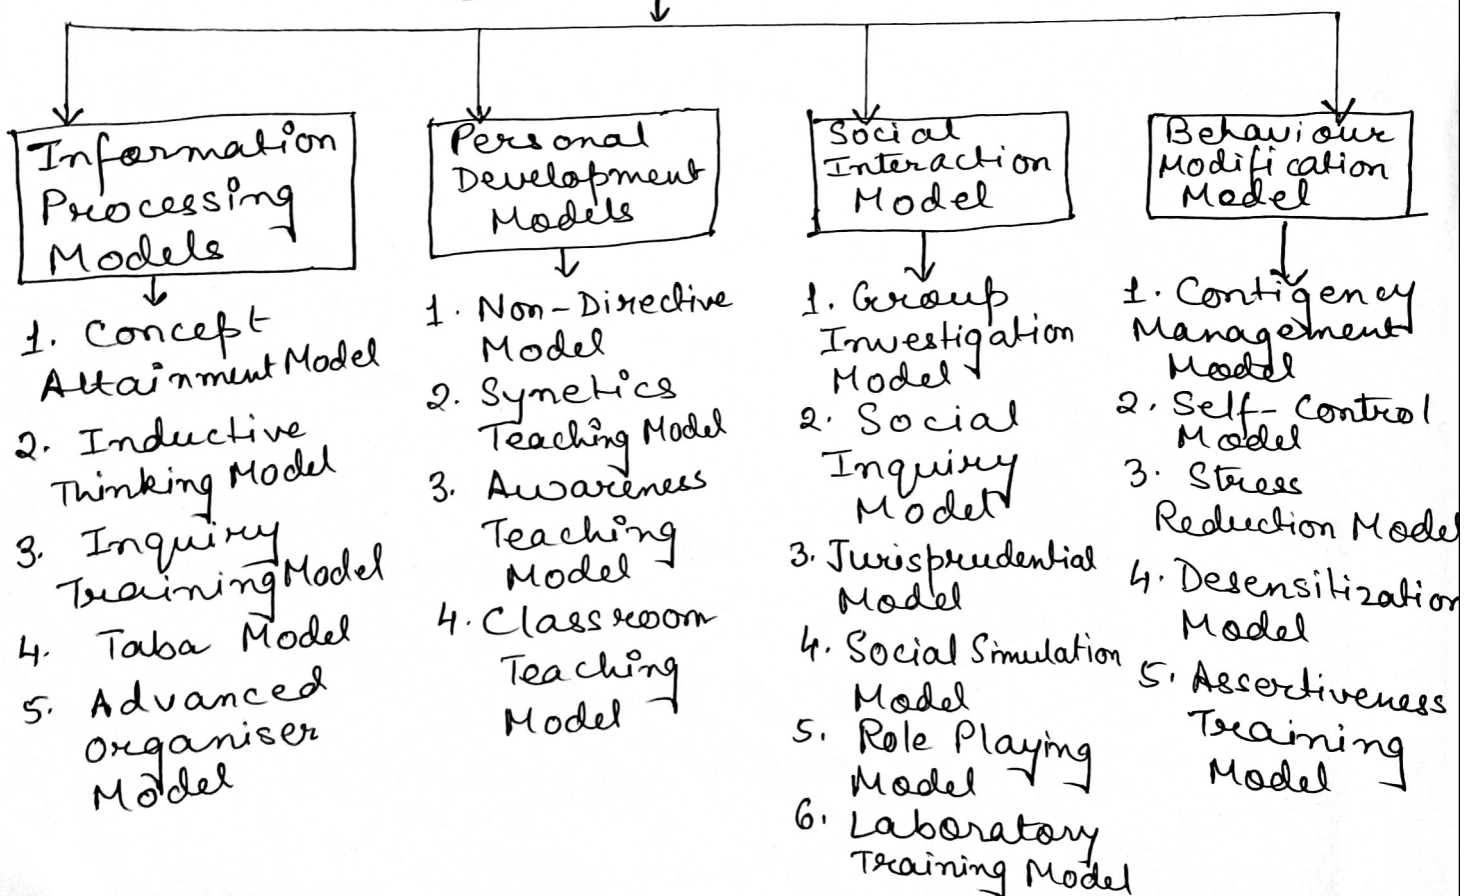 Information
Processing
Models
1. Concept
Attainment Model
2. Inductive
Thinking Model
3. Inquiry
Training Model
4. Taba Model
5. Advanced
Organiser
Model
Personal
Development
Models
1. Non-Directive
Model
2. Synetics
Teaching Model
3. Awareness
Teaching
Model
4. Classroom
Teaching
Model
Social
Interaction
Model
1. Group
Investigation
Model
2. Social
Inquiry
Model
3. Jurisprudential
Model
4. Social Simulation
Model
5. Role Playing
Model
6. Laboratory
Training Model
Behaviour
Modification
Model
1. Contigency
Management
Model
2. Self-Control
Model
3. Stress
Reduction Model
4. Desensitization
Model
5. Assertiveness
Training
Model